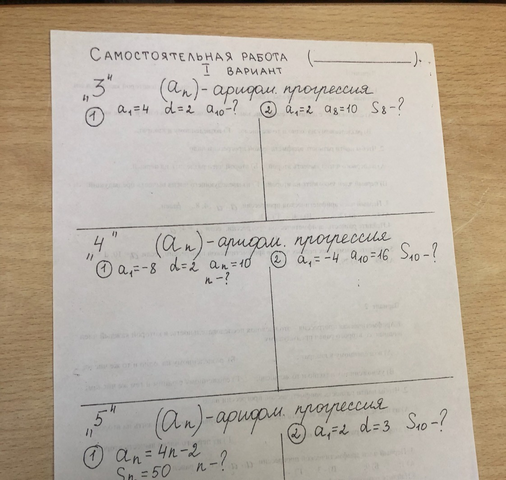 САМОСТОЯТЕЛЬНАЯ РАБОТА (__________).
I ВАРИАНТ
„3“ (an)-арифм. прогрессия
① a1=4 d=2 a10-? ② a1=2 a8=10 S8-?
„4“ (an)-арифм. прогрессия
① a1=-8 d=2 an=10 ② a1=-4 a10=16 S10-?
n-?
„5“ (an)-арифм. прогрессия
① an=4n-2 ② a1=2 d=3 S10-?
Sn=50 n-?